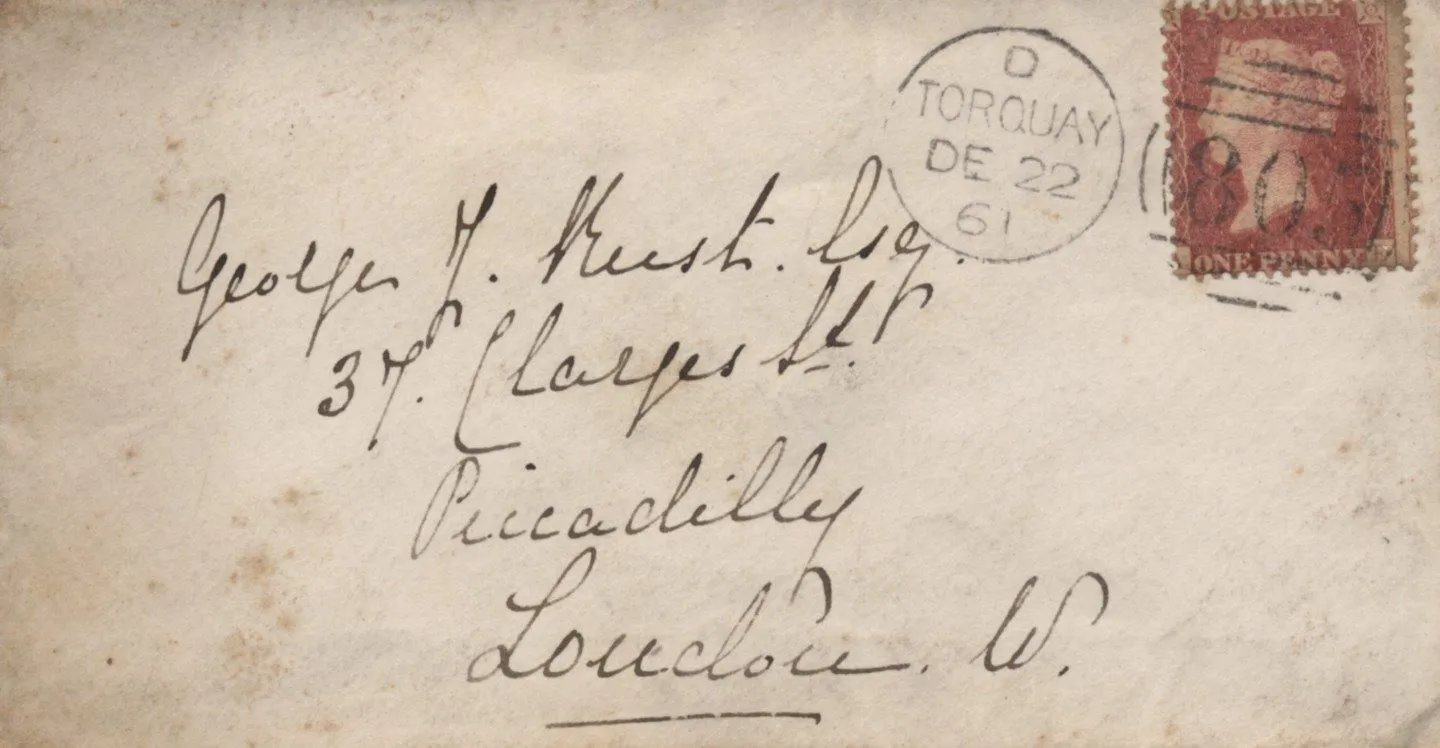 D
TORQUAY
DE 22
61
POSTAGE
80
ONE PENNY
George J. Rust. Esq.
37. Clarges St.
Piccadilly
London. W.